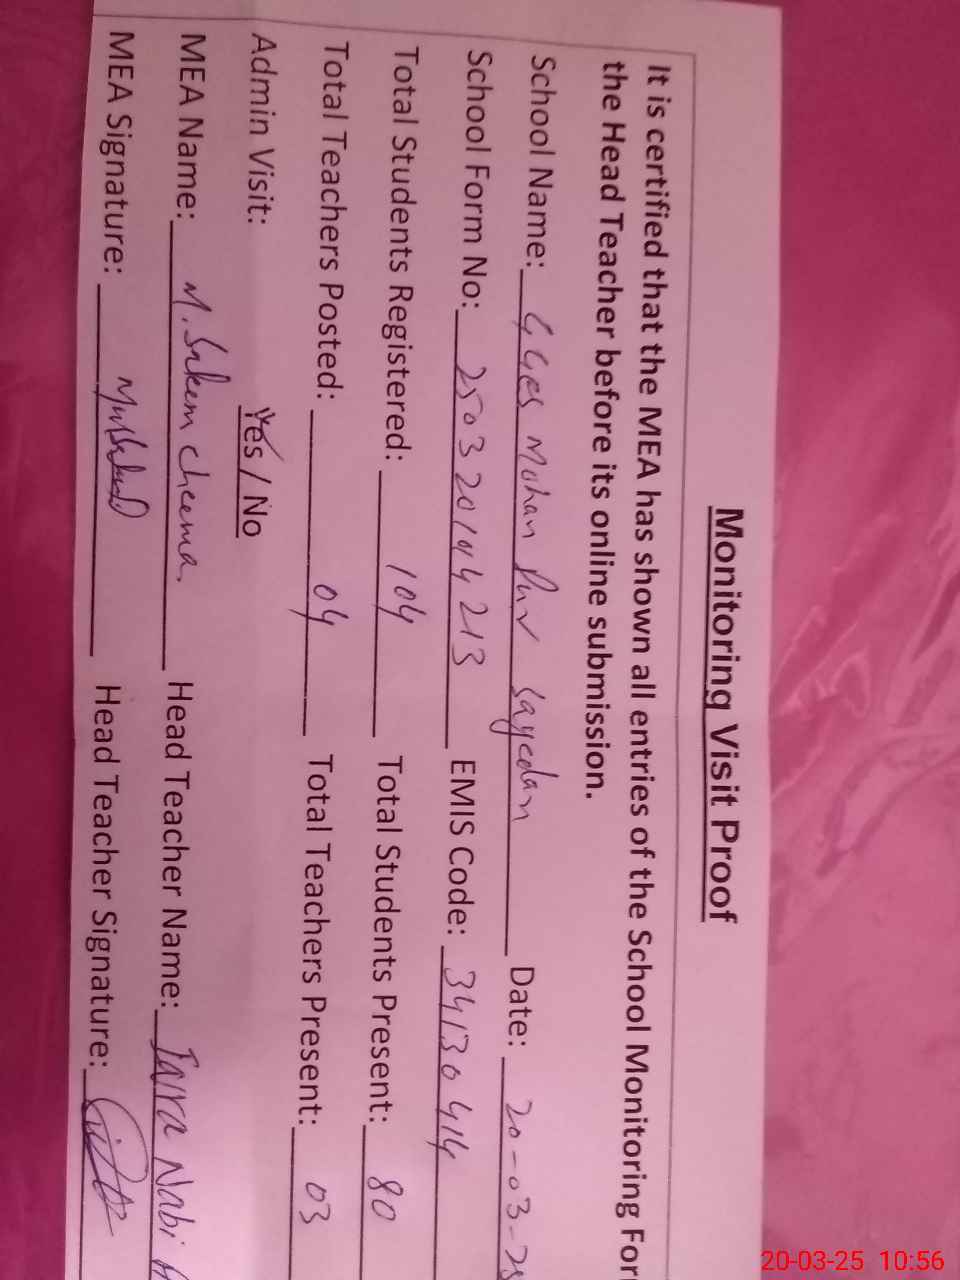 Monitoring Visit Proof
It is certified that the MEA has shown all entries of the School Monitoring For
the Head Teacher before its online submission.
School Name: GGES Mohan Pur Sayedan Date: 20-03-25
School Form No: 25032014 4213 EMIS Code: 34130414
Total Students Registered: 104 Total Students Present: 80
Total Teachers Posted: 04 Total Teachers Present: 03
Admin Visit: Yes / No
MEA Name: M. Saleem cheema Head Teacher Name: Nabi
MEA Signature: Head Teacher Signature:
20-03-25 10:56